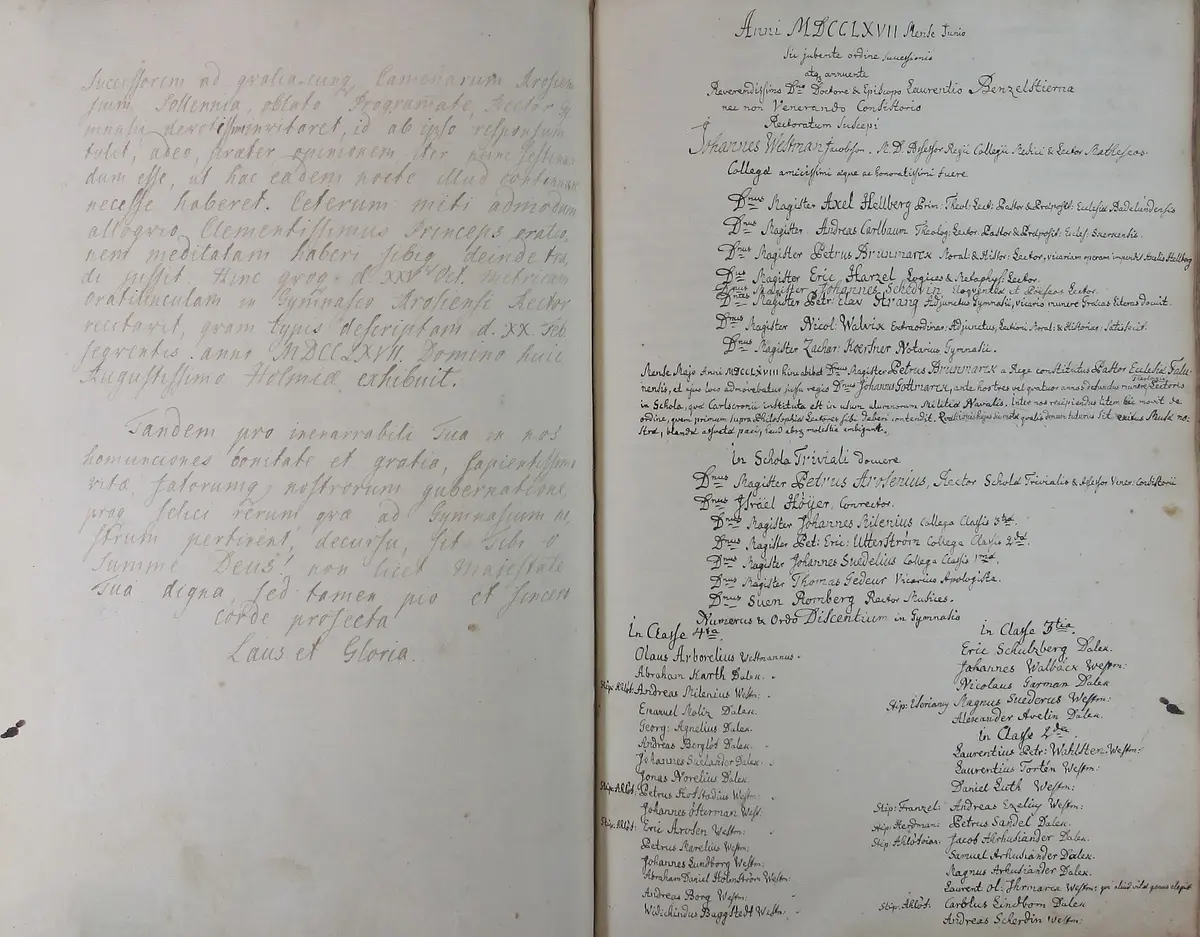 Successorem ad qualiacunq Camoenarum Arosien
sium Sollennia, oblato Programmate, Rector Gy
mnasii devotissime invitaret, id ab ipso responsum
tulit, adeo, præter opinionem iter nunc festinan
dum esse, ut hac eadem nocte illud continuare
necesse haberet. Ceterum miti admodum
alloqvio Clementissimus Princeps oratio
nem meditatam haberi sibiq deinde tra
di jussit. Hinc qvoq d. XXV Oct. metricam
oratiunculam in Gymnasio Arosiensi Rector
recitavit, qvam typis descriptam d. XX Feb
seqventis anni MDCCLXVII. Domino huic
Augustissimo Holmiæ exhibuit.
Tandem pro inenarrabili Tua in nos
homunciones bonitate et gratia, sapientissima
vitæ fatorumq nostrorum gubernatione,
proq felici rerum qvæ ad Gymnasium no
strum pertinent, decursu, sit Tibi o
Summe Deus! non licet Majestate
Tua digna, sed tamen pio et sincero
corde profecta
Laus et Gloria.
Anni MDCCLXVII Mense Junio
Sic jubente ordine successionis
atq annuente
Reverendissimo Dno Doctore & Episcopo Laurentio Benzelstierna
nec non Venerando Consistorio
Rectoratum suscepi
Johannes Westman Jacobsson. M. D. Assessor Regii Collegii Medici & Lector Matheseos.
Collegæ amicissimi æque ac honoratissimi fuere
Dnus Magister Axel Hellberg Prim: Theol: Lect: Pastor & Præposit: Ecclesiæ Badelundensis
Dnus Magister. Andreas Carlbaum Theolog: Lector. Pastor & Præposit: Eccles:
Dnus Magister Petrus Brunmarck Moral: & Histor: Lector, vicariam operam Axelio Hellberg
Dnus Magister Eric Harzel, Logices & Metaphys: Lector.
Dnus Magister Johannes Schedvin Eloqventiæ et Poëseos Lector.
Dnus Magister Petr: Elav: Strang Adjunctus Gymnasii, vicario munere Græcas literas docuit.
Dnus Magister Nicol: Walvik Extraordinar: Adjunctus, Lectioni Moral: & Historiar: satisfecit.
Dnus Magister Zachar: Koersner Notarius Gymnasii.
Mense Majo Anni MDCCLXVIII hinc abiit Dnus Magister Petrus Brunmarck a Rege constitutus Pastor Ecclesiæ Falu-
nensis, et ejus loco admovebatur jussu regis Dnus Johannes Gottmarck, ante hos tres vel qvatuor annos defunctus munere Theologiæ Lectoris
in Schola, qvæ Carlscronæ instituta est in usum alumnorum Militiæ Navalis. Inter nos recipiendus litem hic movit de
ordine, qvem primum supra Philosophiæ Lectores sibi deberi contendit. sit exitus Musæ no-
stræ, blandæ asvetæ paci, haud absq molestia ambigunt.
In Schola Triviali docuere
Dnus Magister Petrus Arosenius, Rector Scholæ Trivialis & Assessor Vener: Consistorii
Dnus Israël Höijer, Conrector.
Dnus Magister Johannes Milenius Collega Classis 3tiæ.
Dnus Magister Pet: Eric: Utterström Collega Classis 2dæ.
Dnus Magister Johannes Suedelius Collega Classis 1mæ.
Dnus Magister Thomas Gedeur Vicarius Apologista.
Dnus Suen Romberg Rector Musices.
Numerus & Ordo Discentium in Gymnasio
In Classe 4ta
Olaus Arborelius Westmannus
Abraham Harth Dalek.
Stip: Ahlöt: Andreas Milenius Westm:
Emanuel Molin Dalek.
Georg: Agnelius Dalek.
Andreas Berglöt Dalek.
Johannes Suelander Dalek.
Jonas Norelius Dalek.
Stip: Ahlöt: Petrus Hofstadius Westm:
Johannes Österman Westm:
Stip: Ahlöt: Eric Arosen Westm:
Petrus Marelius Westm:
Johannes Lundborg Westm:
Abraham Daniel Holmström Westm:
Andreas Borg Westm:
Widichindus Baggstedt Westm:
In Classe 3tia.
Eric Schultzberg Dalek.
Johannes Walback Westm:
Nicolaus Garman Dalek.
Magnus Suederus Westm:
Alexander Avelin Dalek.
In Classe 2da
Laurentius Petr: Wahlsten Westm:
Laurentius Tortén Westm:
Daniel Luth Westm:
Stip: Franzel: Andreas Exelius Westm:
Stip: Herdman: Petrus Sandel Dalek.
Stip: Ahlötsian: Jacob Ahrhusiander Dalek.
Samuel Arhusiander Dalek.
Magnus Arhusiander Dalek.
Laurent: Ol: Ihrmarck Westm: qui aliud vitæ genus elegit
Stip: Ahlöt: Carolus Lindbom Dalek
Andreas Scherdin Westm: